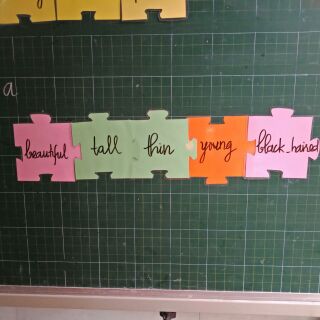 a
beautiful tall thin young black-haired